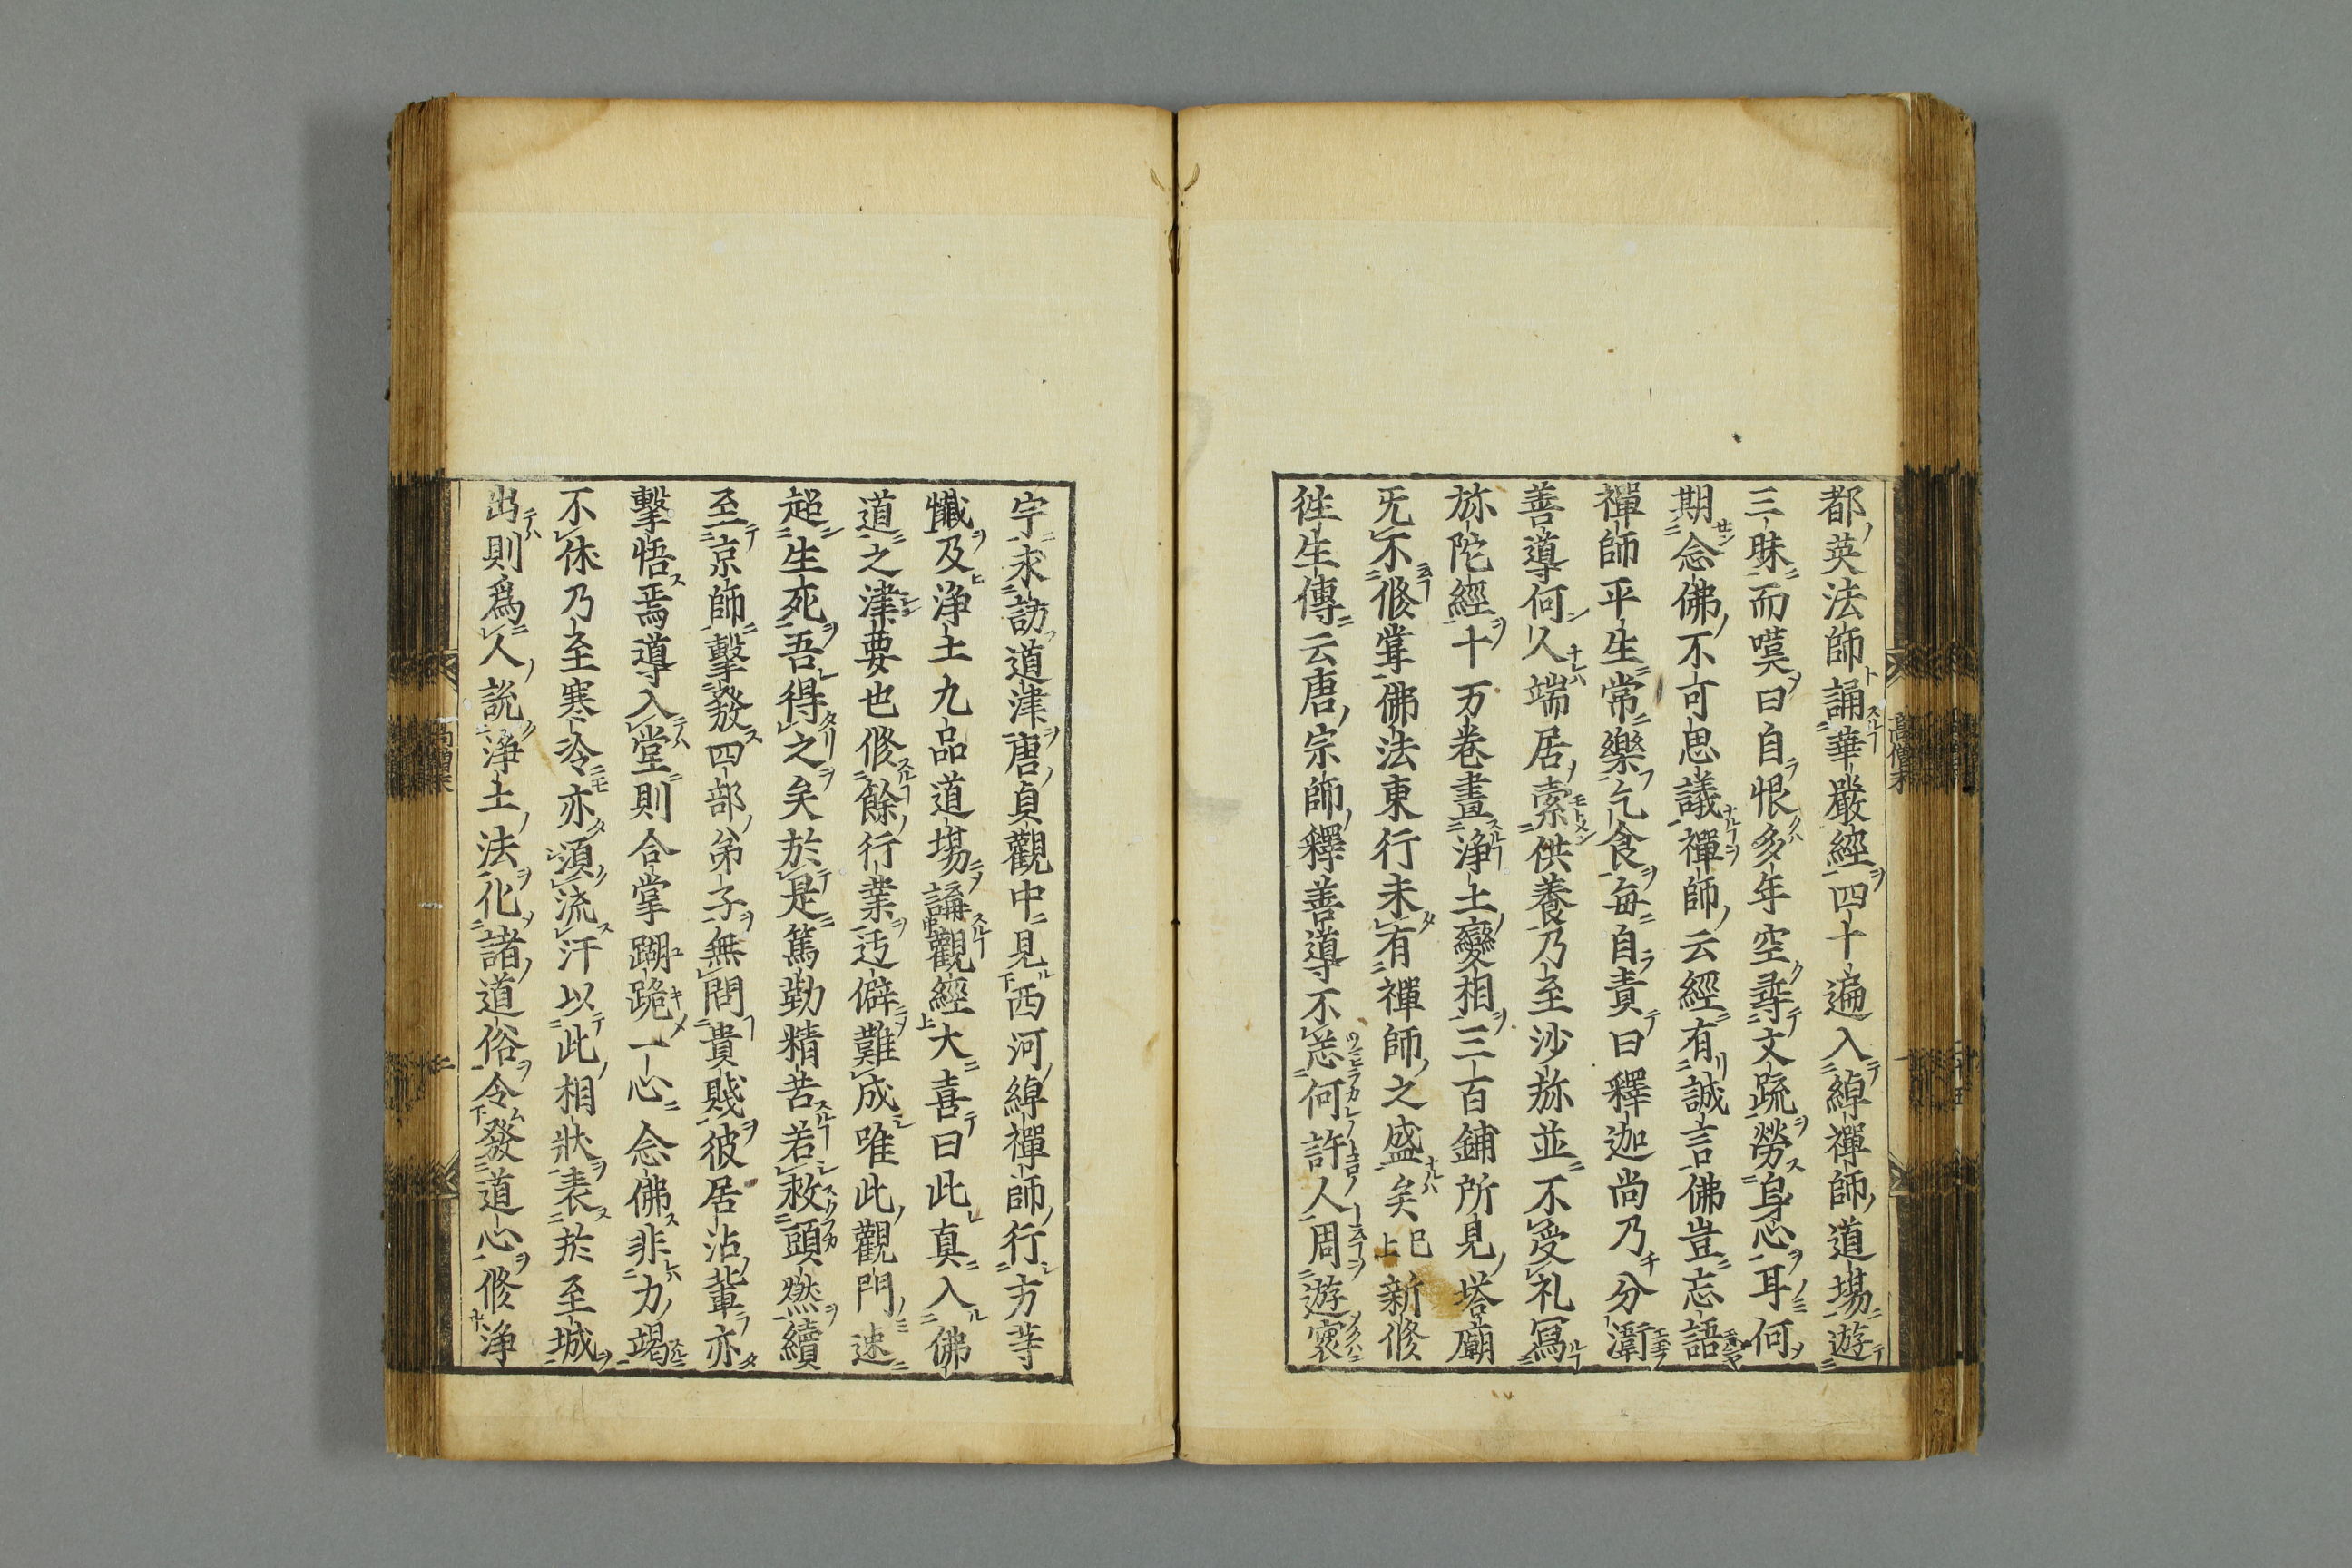 都英法師誦華嚴經四十遍入綽禪師道場遊
三昧而嘆曰自恨多年空尋文疏勞身心耳何
期念佛不可思議禪師云經有誠言佛豈忘語
禪師平生常樂乞食每自責曰釋迦尚乃分衛
善導何人端居索供養乃至沙弥並不受礼冩
弥陀經十万卷畫浄土變相三百鋪所見塔廟
旡不修葺佛法東行未有禪師之盛矣已上新修
往生傳云唐宗師釋善導不恙何許人周遊寰
宇求訪道津唐貞觀中見西河綽禪師行方等
懺及浄土九品道場誦觀經大喜曰此真入佛
道之津要也修餘行業迃僻難成唯此觀門速
超生死吾得之矣於是篤勤精苦若救頭燃續
至京師擊發四部弟子無問貴賤彼居沽輩亦
擊悟焉導入堂則合掌䠒跪一心念佛非力竭
不休乃至寒冷亦湏流汗以此相狀表於至城
出則爲人說浄土法化諸道俗令發道心修浄